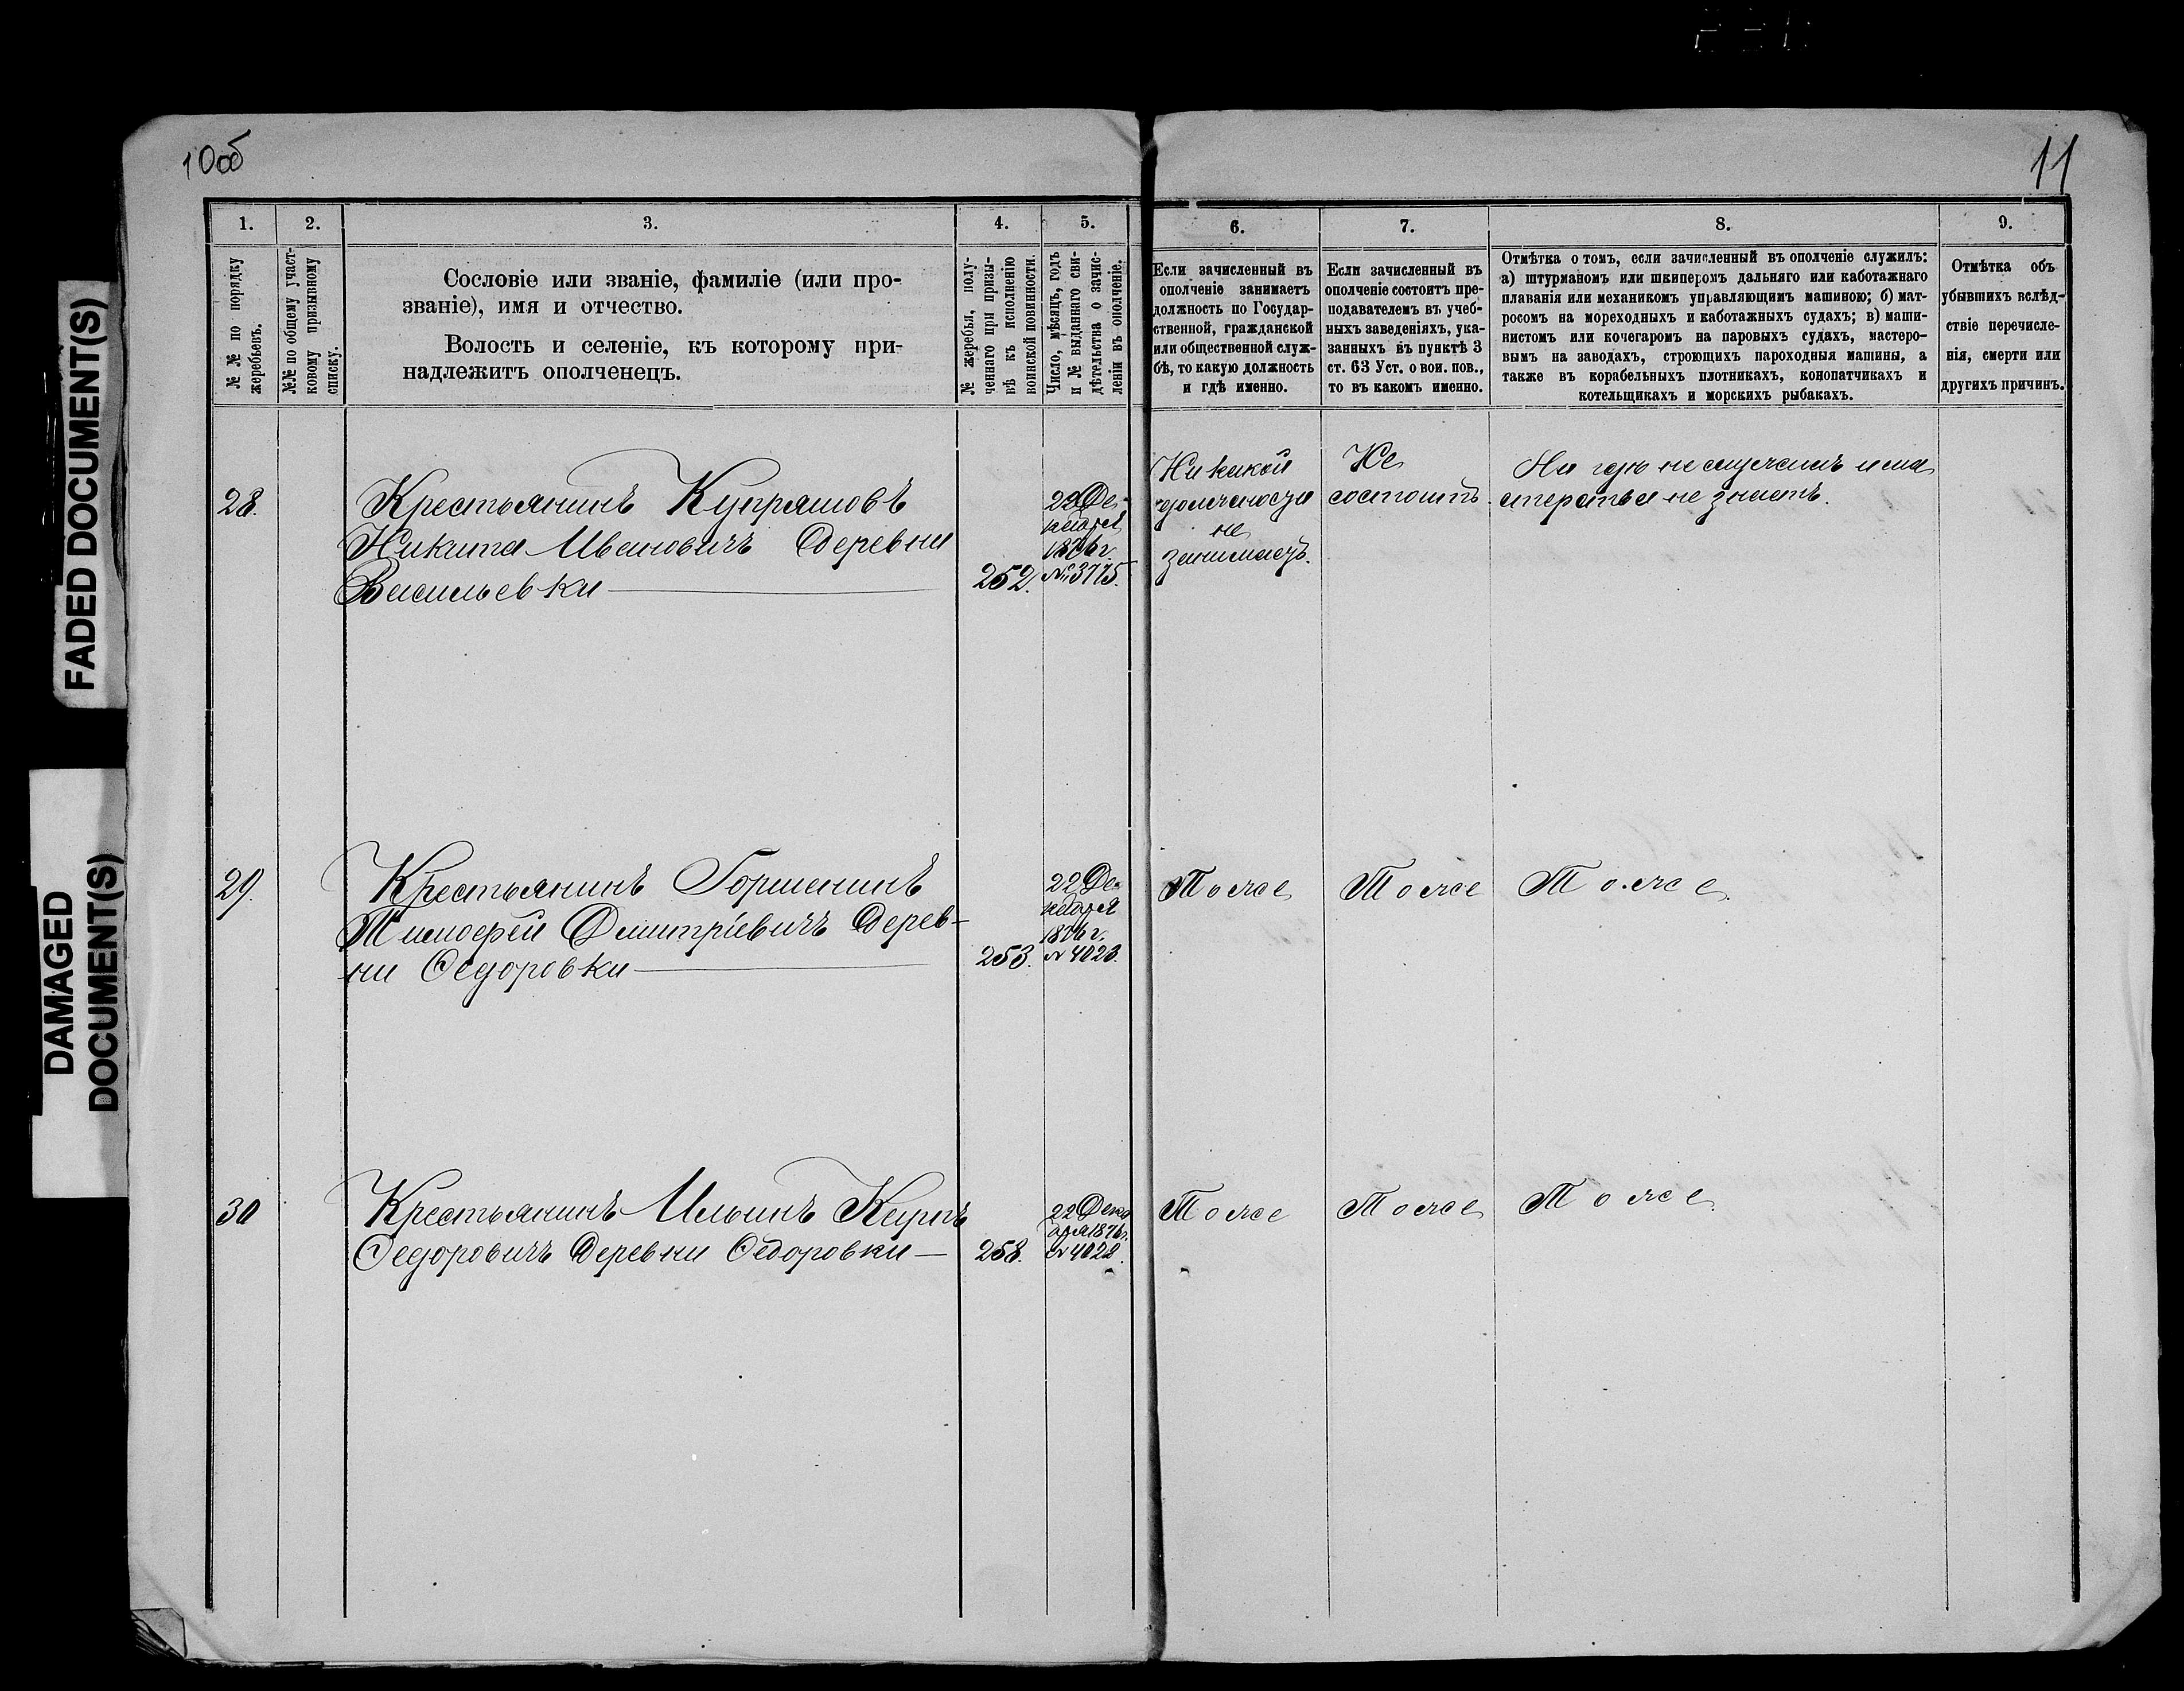 10об
11
FADED DOCUMENT(S)
DAMAGED
DOCUMENT(S)
1.
2.
3.
4.
5.
6.
7.
8.
9.
№ № по порядку
жеребьевъ.
№№ по общему участ-
ковому призывному
списку.
Сословіе или званіе, фамиліе (или про-
званіе), имя и отчество.
Волость и селеніе, къ которому при-
надлежитъ ополченецъ.
№ жеребья, полу-
ченнаго при призы-
вѣ къ исполненію
воинской повинности.
Число, мѣсяцъ, годъ
и № выданнаго сви-
дѣтельства о зачис-
леніи въ ополченіе.
Если зачисленный въ
ополченіе занимаетъ
должность по Государ-
ственной, гражданской
или общественной служ-
бѣ, то какую должность
и гдѣ именно.
Если зачисленный въ
ополченіе состоитъ пре-
подавателемъ въ учеб-
ныхъ заведеніяхъ, ука-
занныхъ въ пунктѣ 3
ст. 63 Уст. о вои. пов.,
то въ какомъ именно.
Отмѣтка о томъ, если зачисленный въ ополченіе служилъ:
а) штурманомъ или шкиперомъ дальняго или каботажнаго
плаванія или механикомъ управляющимъ машиною; б) мат-
росомъ на мореходныхъ и каботажныхъ судахъ; в) маши-
нистомъ или кочегаромъ на паровыхъ судахъ, мастеро-
вымъ на заводахъ, строющихъ пароходныя машины, а
также въ корабельныхъ плотникахъ, конопатчикахъ и
котельщикахъ и морскихъ рыбакахъ.
Отмѣтка объ
убывшихъ вслѣд-
ствіе перечисле-
нія, смерти или
другихъ причинъ.
28.
Крестьянинъ Купряшовъ
Никита Ивановичъ Деревни
Васильевки
252.
22 Де-
кабря
1876 г.
№ 3775.
Никакой
должности
не
занимаетъ.
Не
состоитъ.
не служилъ и ма
стерства не знаетъ.
29.
Крестьянинъ Горшенинъ
Тимофей Дмитріевичъ Дерев-
ни Федоровки
253.
22 Де-
кабря
1876 г.
№ 4023.
Тоже
Тоже
Тоже
30
Крестьянинъ Ильинъ Карпъ
Федоровичъ Деревни Федоровки
258.
22 Декаб
аря 1876 г.
№ 4022.
Тоже
Тоже
Тоже